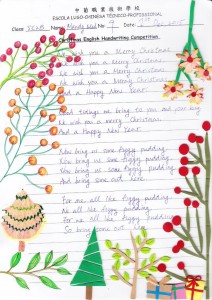 中葡職業技術學校
ESCOLA LUSO-CHINESA TÉCNICO-PROFESSIONAL
Class: Name: No: 9 Date:
Christmas English Handwriting Competition
We wish you a Merry Christmas
We wish you a Merry Christmas
We wish you a Merry Christmas
And a Happy New Year.
Good tidings we bring to you and your king
We wish you a merry Christmas
And a Happy New Year.
Now bring us some figgy pudding
Now bring us some figgy pudding
Now bring us some figgy pudding
And bring some out here
For we all like figgy pudding
We all like figgy pudding
For we all like figgy pudding
So bring some out here